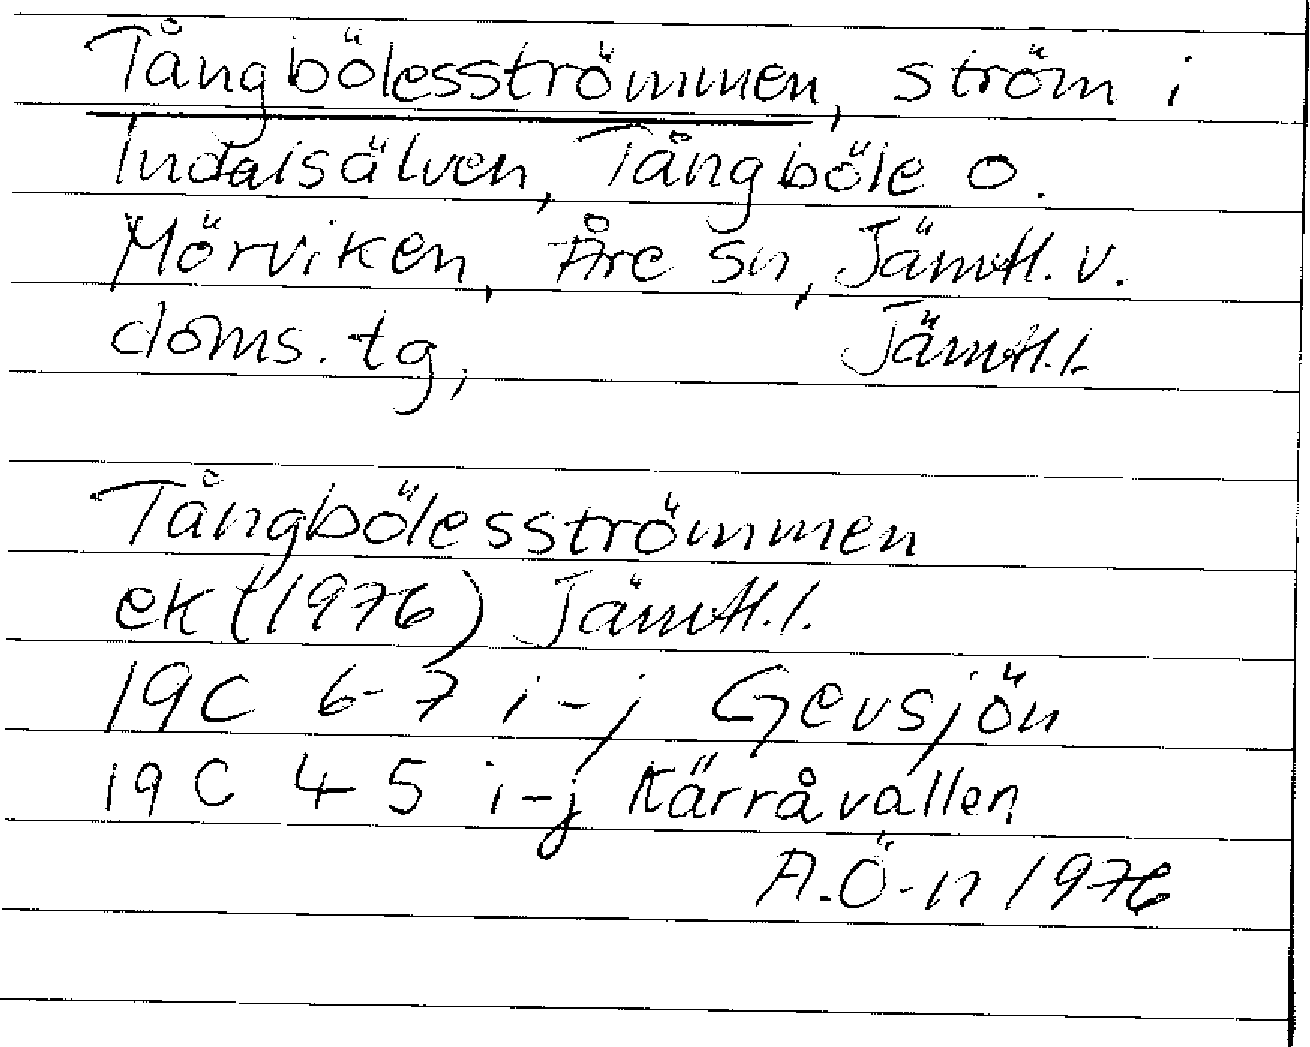 Tångbölesströmmen, ström i
Indalsälven, Tångböle o.
Mörviken, Åre sn, Jämtl. v.
doms. tg, Jämtl. l.
Tångbölesströmmen
ek (1976) Jämtl. l.
19C 6-7 i-j Gevsjön
19C 4-5 i-j Kärråvallen
A.Ö-n 1976